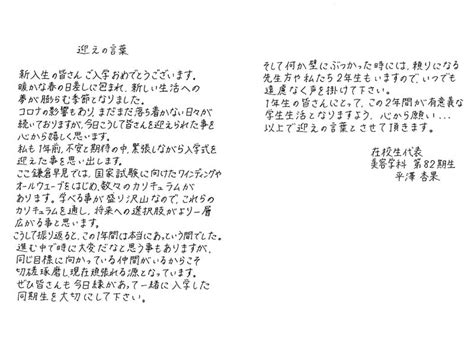 迎えの言葉
新入生の皆さんご入学おめでとうございます。
暖かな春の日差しに包まれ、新しい生活への
夢が膨らむ季節となりました。
コロナの影響もあり、まだまだ落ち着かない日々が
続いておりますが、今日こうして皆さんを迎えられた事を
心から嬉しく思います。
私も1年前、不安と期待の中、緊張しながら入学式を
迎えた事を思い出します。
ここ鎌倉早見では、国家試験に向けたワインディングや
オールウェーブをはじめ、数々のカリキュラムが
あります。学べる事が盛り沢山なので、これらの
カリキュラムを通し、将来への選択肢がより一層
広がる事と思います。
こうして振り返ると、この1年間は本当にあっという間でした。
進む中で時に大変だなと思う事もありますが、
同じ目標に向かっている仲間がいるからこそ
切磋琢磨し現在頑張れる源となっています。
ぜひ皆さんも今日縁があって一緒に入学した
同期生を大切にして下さい。
そして何か壁にぶつかった時には、頼りになる
先生方や私たち2年生もいますので、いつでも
遠慮なく声を掛けて下さい。
1年生の皆さんにとって、この2年間が有意義な
学生生活となりますよう、心から願い…
以上で迎えの言葉とさせて頂きます。
在校生代表
美容学科 第82期生
平澤 杏果